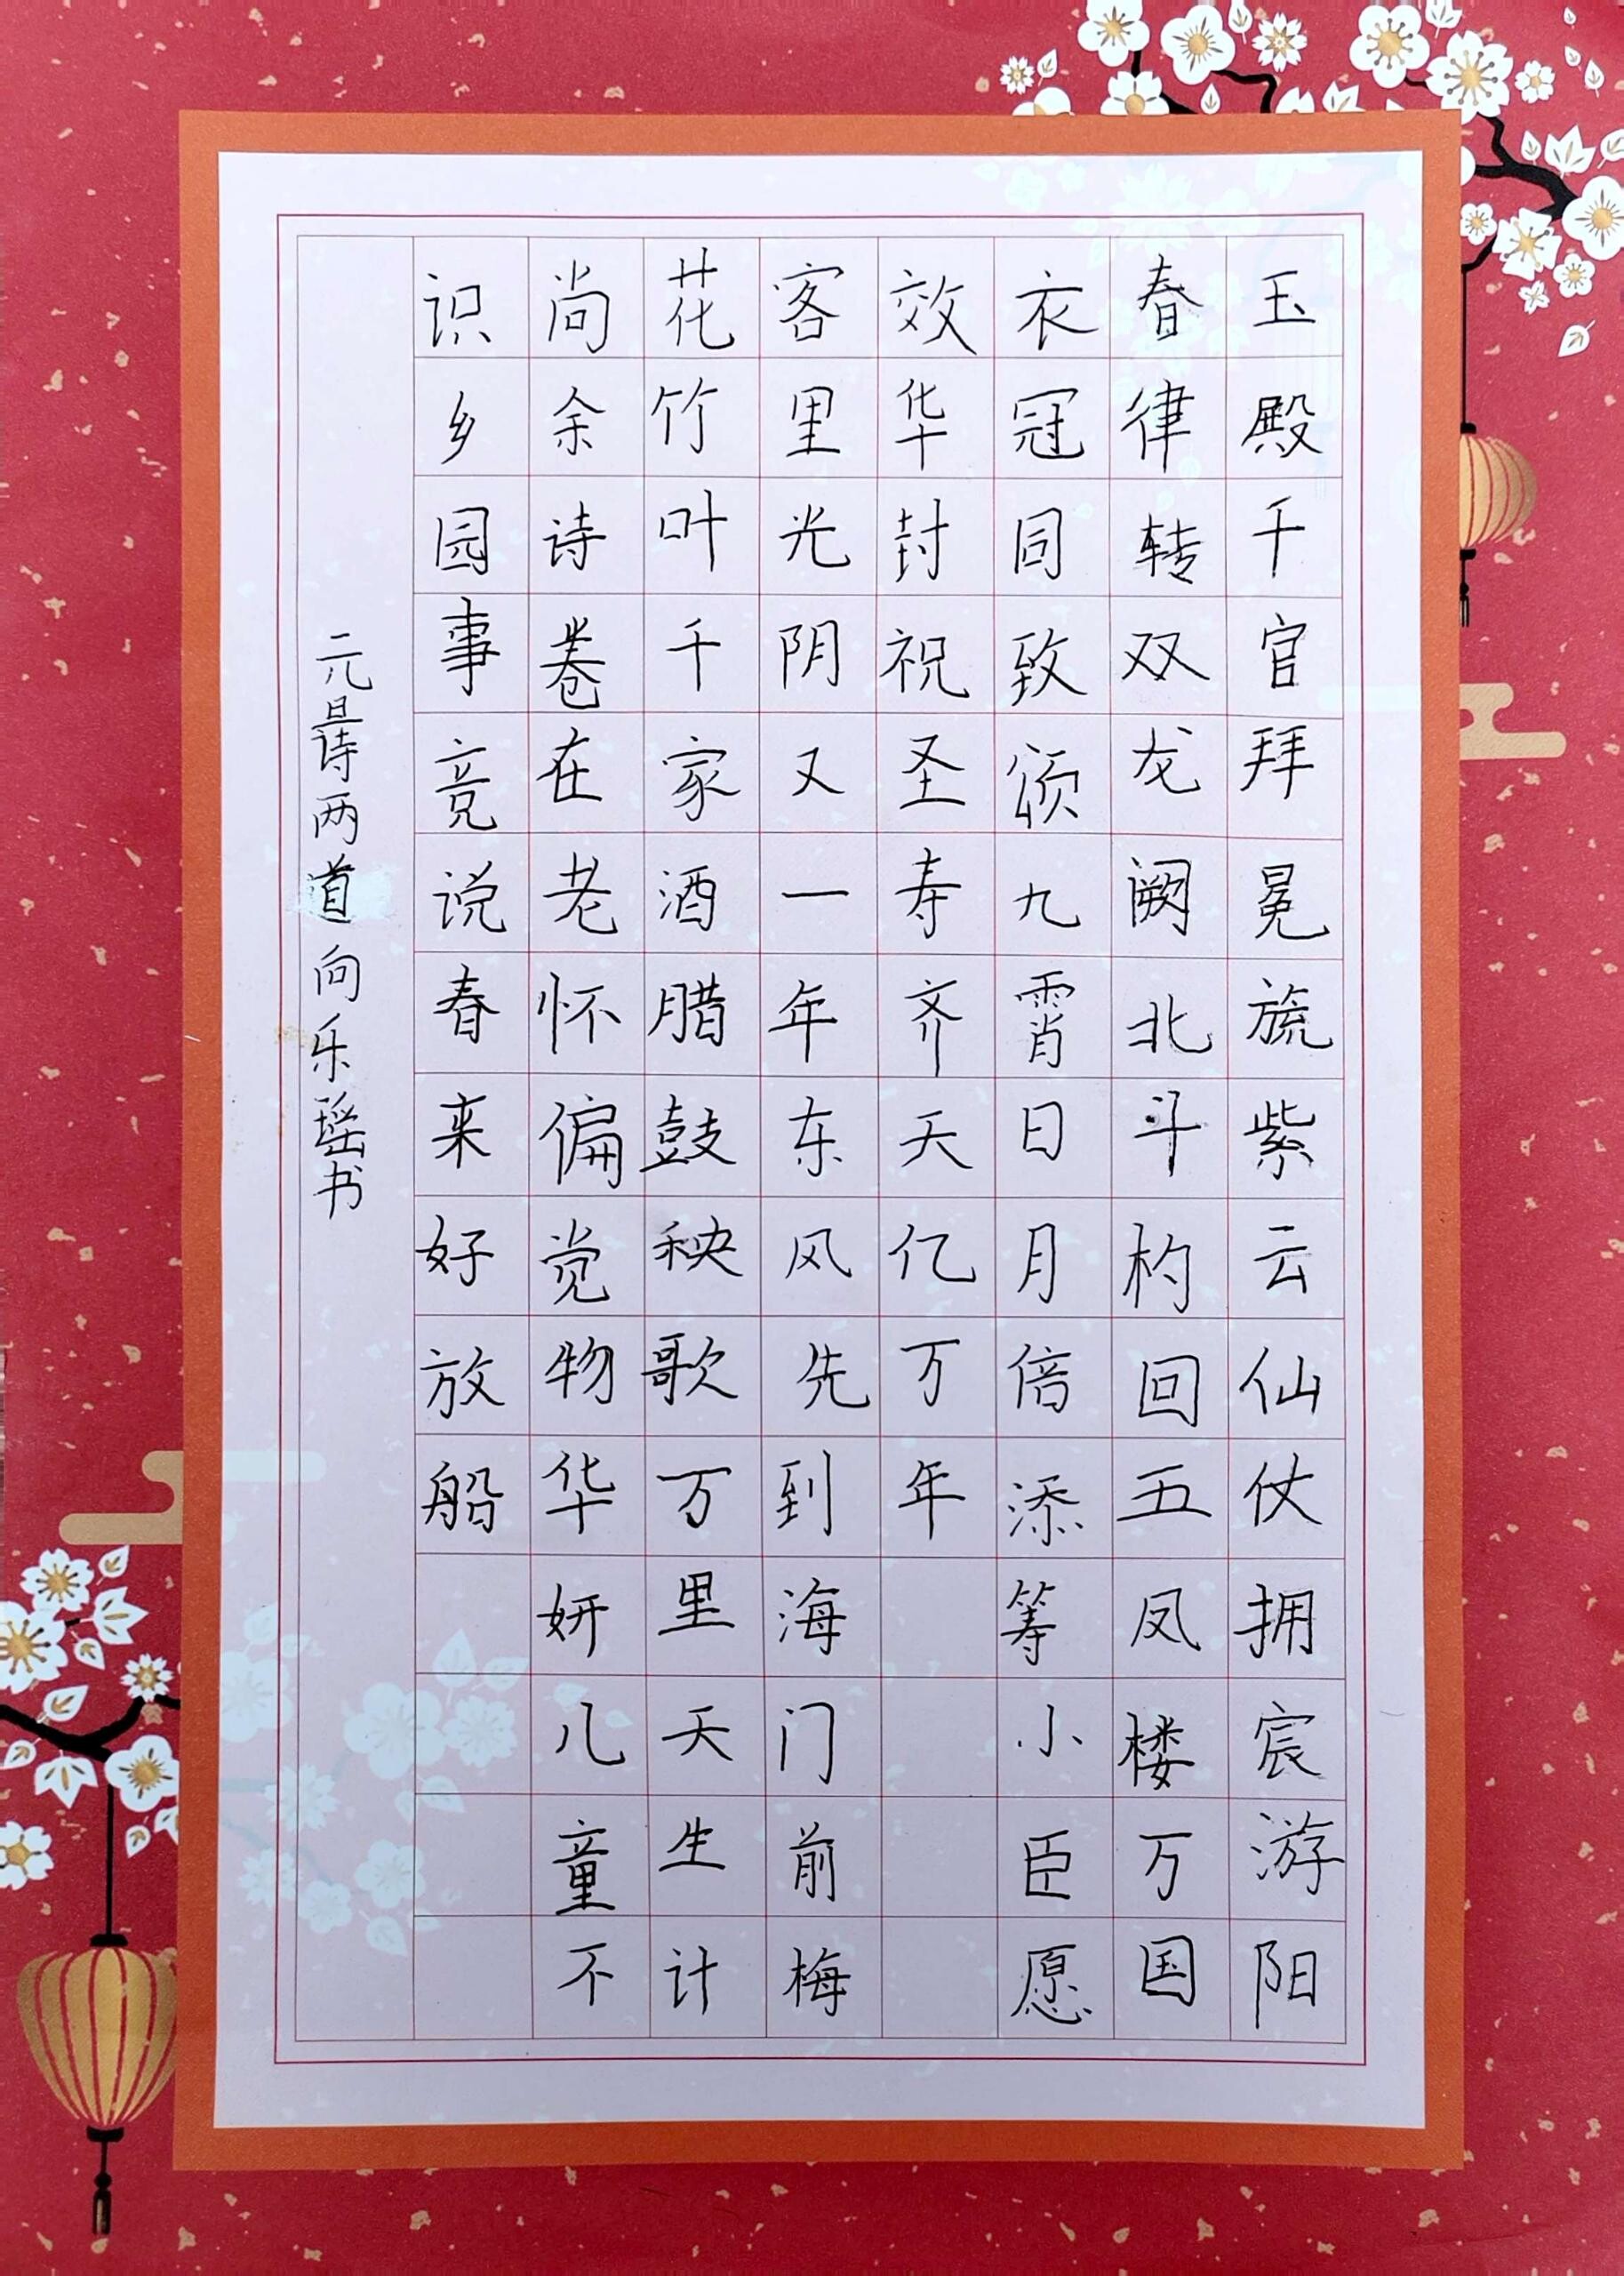 玉殿千官拜冕旒紫云仙仗拥宸游阳
春律转双龙阙北斗杓回五凤楼万国
衣冠同致颂九霄日月倍添筹小臣愿
效华封祝圣寿齐天亿万年
客里光阴又一年东风先到海门前梅
花竹叶千家酒腊鼓秧歌万里天生计
尚余诗卷在老怀偏觉物华妍儿童不
识乡园事竞说春来好放船
元旦诗两道向乐瑶书